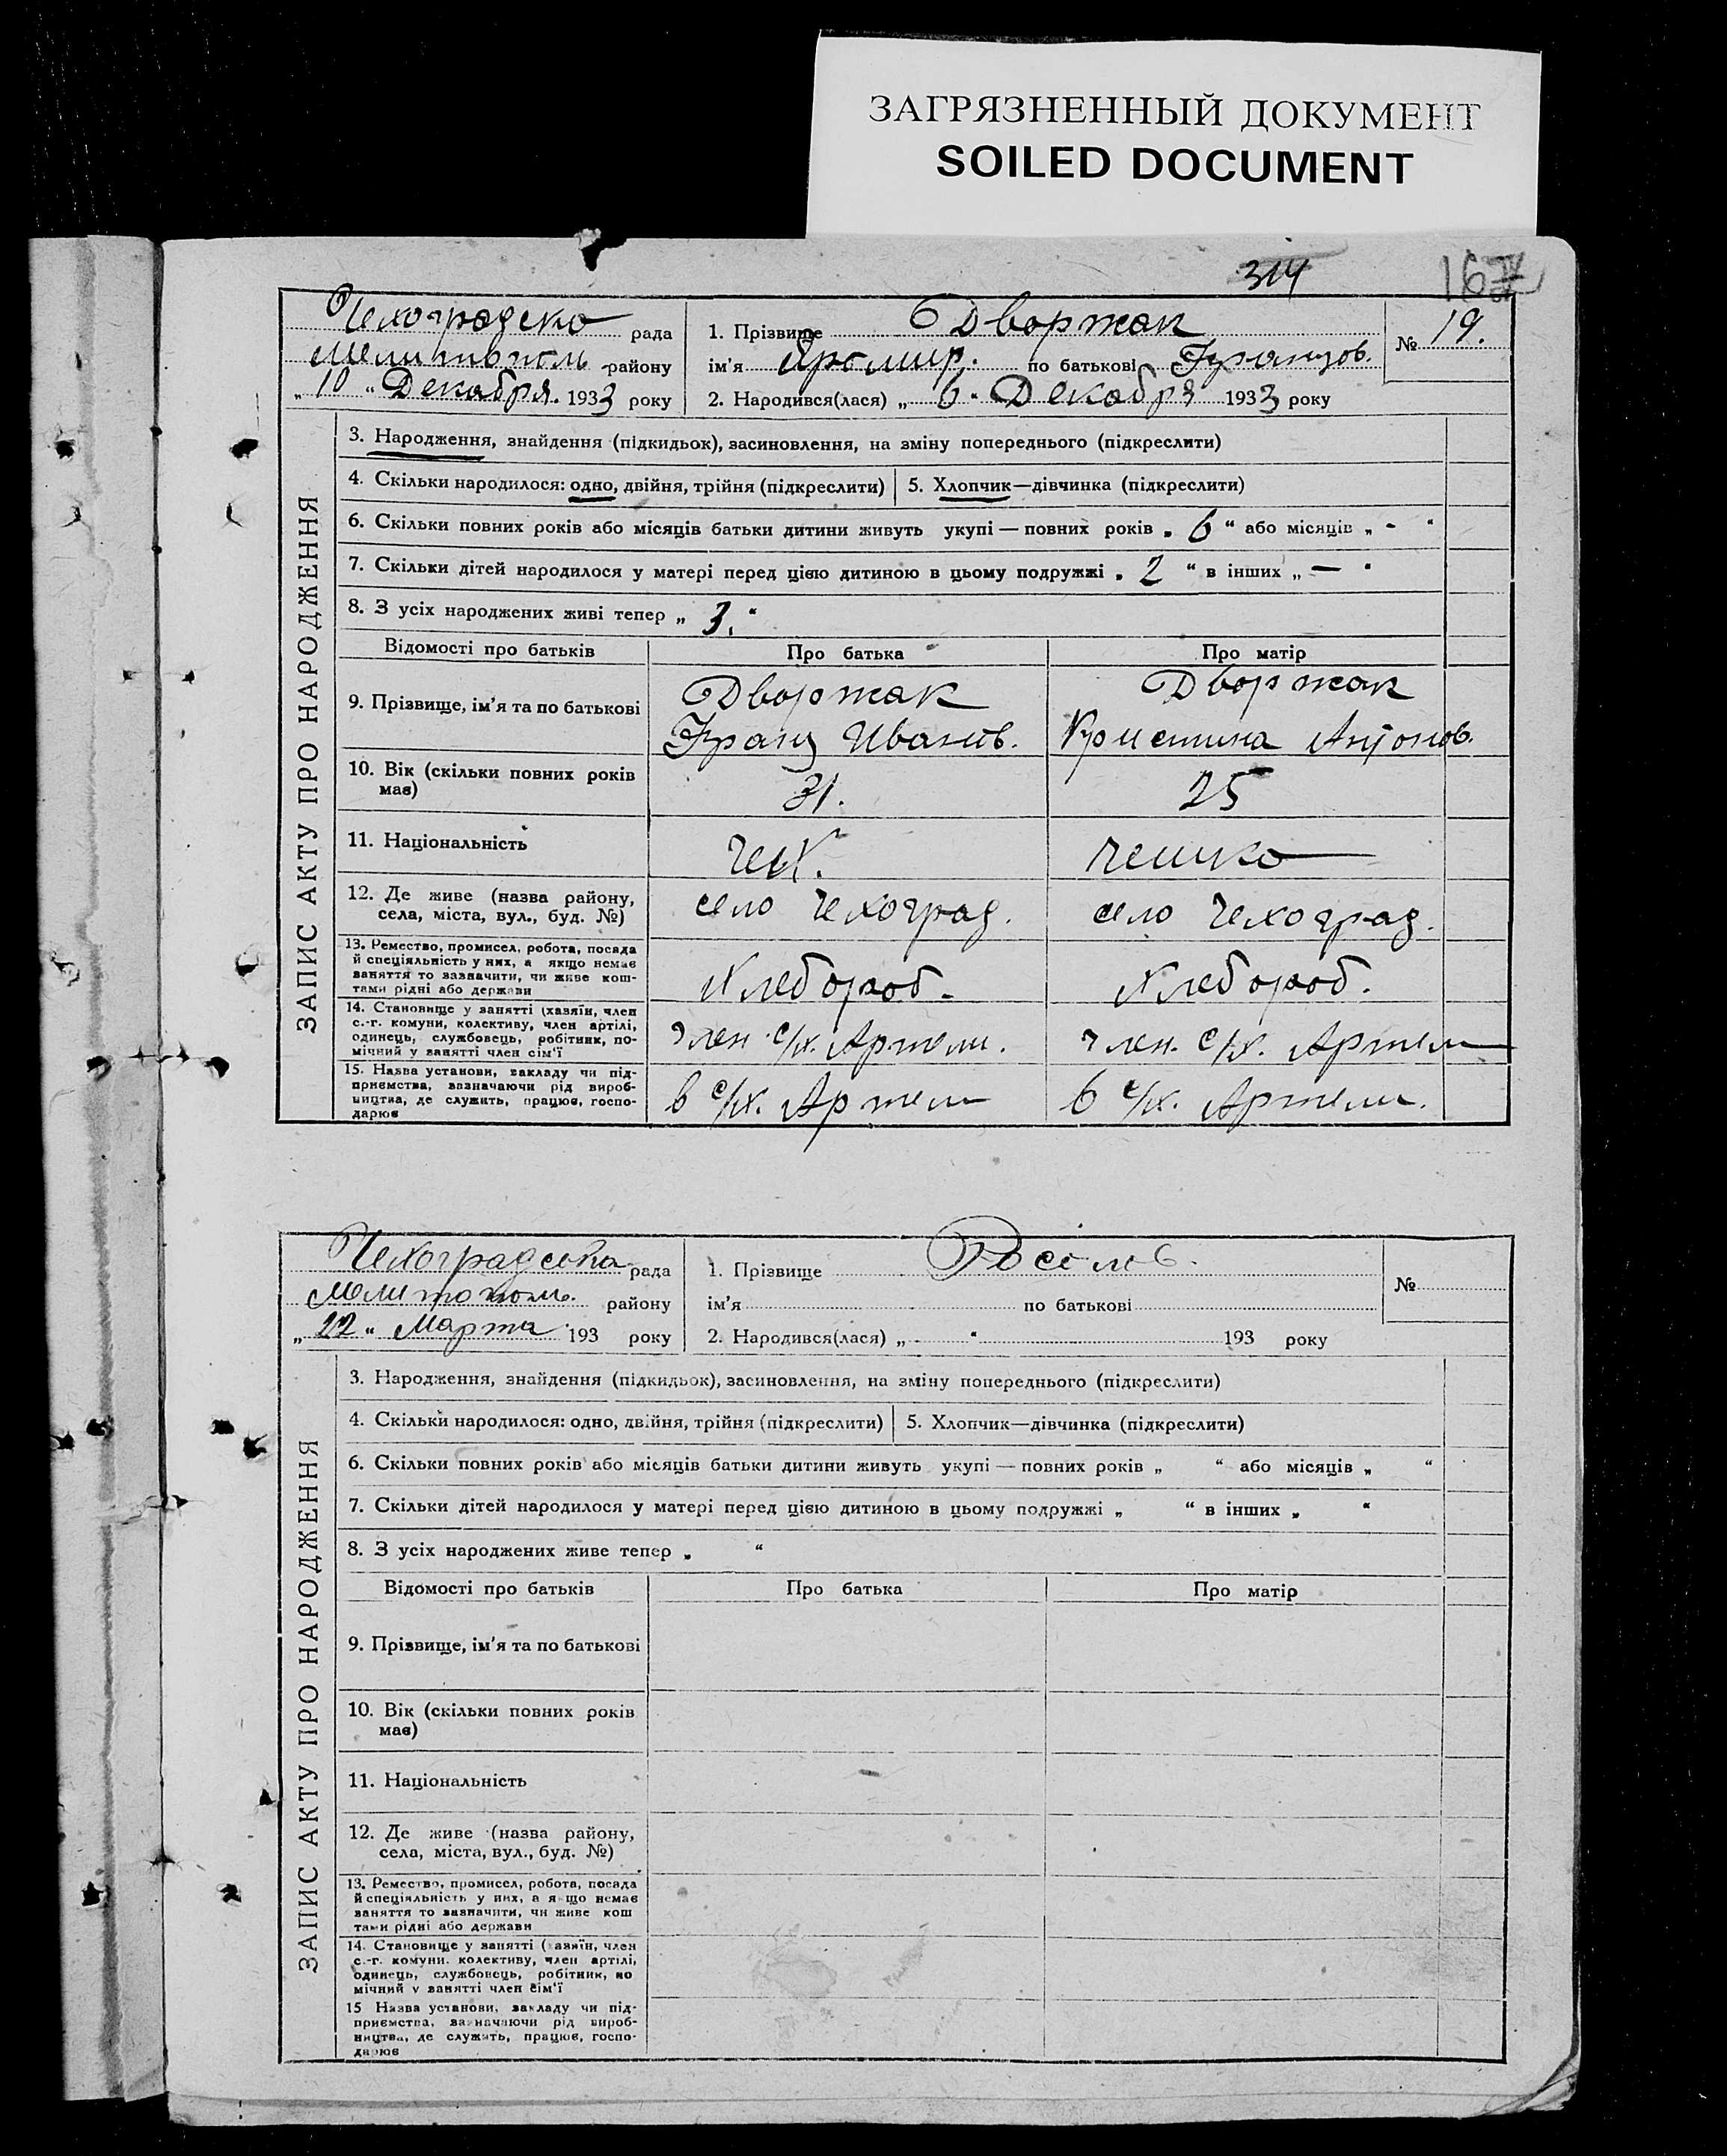 ЗАГРЯЗНЕННЫЙ ДОКУМЕНТ
SOILED DOCUMENT
314
16
ЗАПИС АКТУ ПРО НАРОДЖЕННЯ
Чехоградско рада
Мелитополь району
„ 10 “ Декабря. 1933 року
1. Прізвище Дворжак
ім'я Яромир. по батькові Францов.
2. Народився(лася) „ 6 “ Декабря 1933 року
№ 19.
3. Народження, знайдення (підкидьок), засиновлення, на зміну попереднього (підкреслити)
4. Скільки народилося: одно, двійня, трійня (підкреслити) 5. Хлопчик—дівчинка (підкреслити)
6. Скільки повних років або місяців батьки дитини живуть укупі — повних років „ 6 “ або місяців „ - “
7. Скільки дітей народилося у матері перед цією дитиною в цьому подружжі „ 2 “ в інших „ — “
8. З усіх народжених живі тепер „ 3. “
Відомості про батьків Про батька Про матір
9. Прізвище, ім'я та по батькові
Дворжак
Франц Иванов.
Дворжак
Кристина Антонов.
10. Вік (скільки повних років
має)
31.
25
11. Національність
Чех.
Чешко
12. Де живе (назва району,
села, міста, вул., буд. №)
село Чехоград.
село Чехоград.
13. Ремество, промисел, робота, посада
й спеціяльність у них, а якщо немає
заняття то зазначити, чи живе кош-
тами рідні або держави
Хлебороб.
Хлебороб.
14. Становище у занятті (хазяїн, член
с.-г. комуни, колективу, член артілі,
одинець, службовець, робітник, по-
мічний у занятті член сім'ї
Член с/х. Артели.
Член. с/х. Артели
15. Назва установи, закладу чи під-
приємства, зазначаючи рід вироб-
ництва, де служить, працює, госпо-
дарює
в с/х. Артели
в с/х. Артели.
ЗАПИС АКТУ ПРО НАРОДЖЕННЯ
Чехоградська рада
Мелитополь. району
„ 22 “ Марта 193 року
1. Прізвище
ім'я по батькові
2. Народився(лася) „ “ 193 року
№
3. Народження, знайдення (підкидьок), засиновлення, на зміну попереднього (підкреслити)
4. Скільки народилося: одно, двійня, трійня (підкреслити) 5. Хлопчик—дівчинка (підкреслити)
6. Скільки повних років або місяців батьки дитини живуть укупі — повних років „ “ або місяців „ “
7. Скільки дітей народилося у матері перед цією дитиною в цьому подружжі „ “ в інших „ “
8. З усіх народжених живе тепер „ “
Відомості про батьків Про батька Про матір
9. Прізвище, ім'я та по батькові
10. Вік (скільки повних років
має)
11. Національність
12. Де живе (назва району,
села, міста, вул., буд. №)
13. Ремество, промисел, робота, посада
й спеціяльність у них, а якщо немає
заняття то зазначити, чи живе кош
тами рідні або держави
14. Становище у занятті (хазяїн, член
с.-г. комуни. колективу, член артілі,
одинець, службовець, робітник, по
мічний у занятті член сім'ї
15 Назва установи, закладу чи під-
приємства, зазначаючи рід вироб-
ництва, де служить, працює, госпо-
дарює